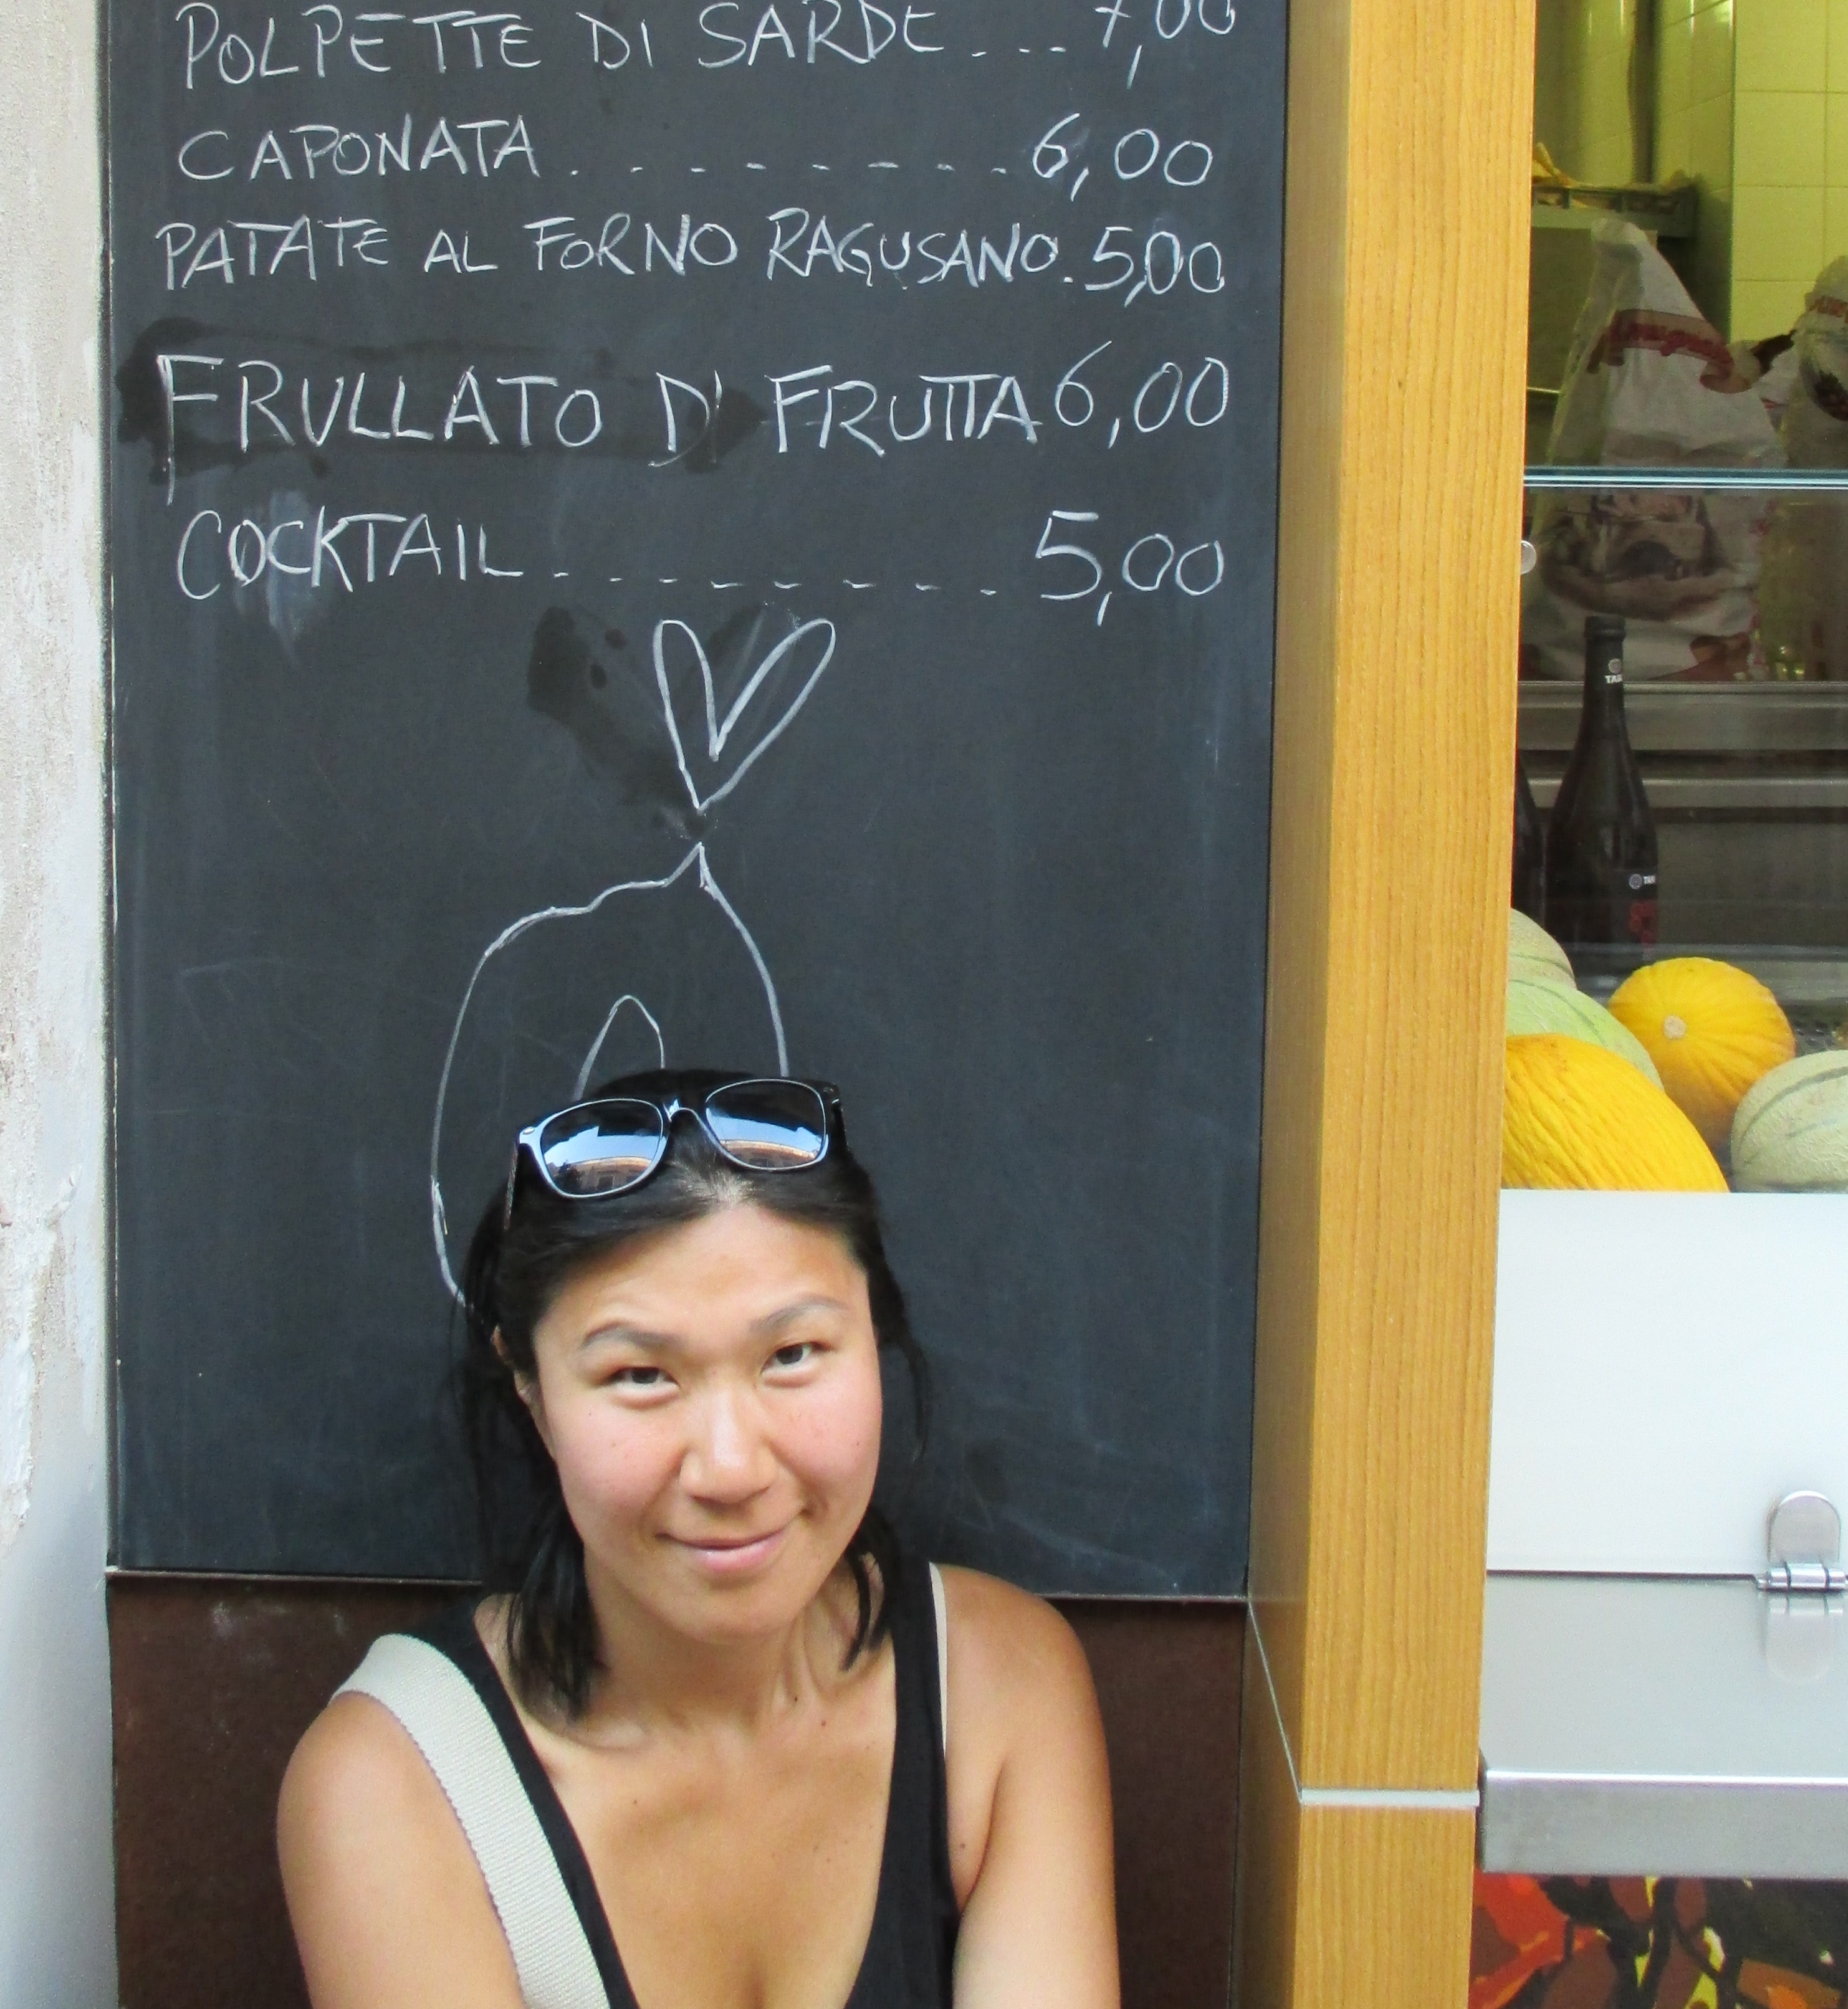 POLPETTE DI SARDE ... 7,00
CAPONATA . . - - - - - - . 6,00
PATATE AL FORNO RAGUSANO . 5,00
FRULLATO DI FRUTTA 6,00
COCKTAIL . - - - - - - - 5,00